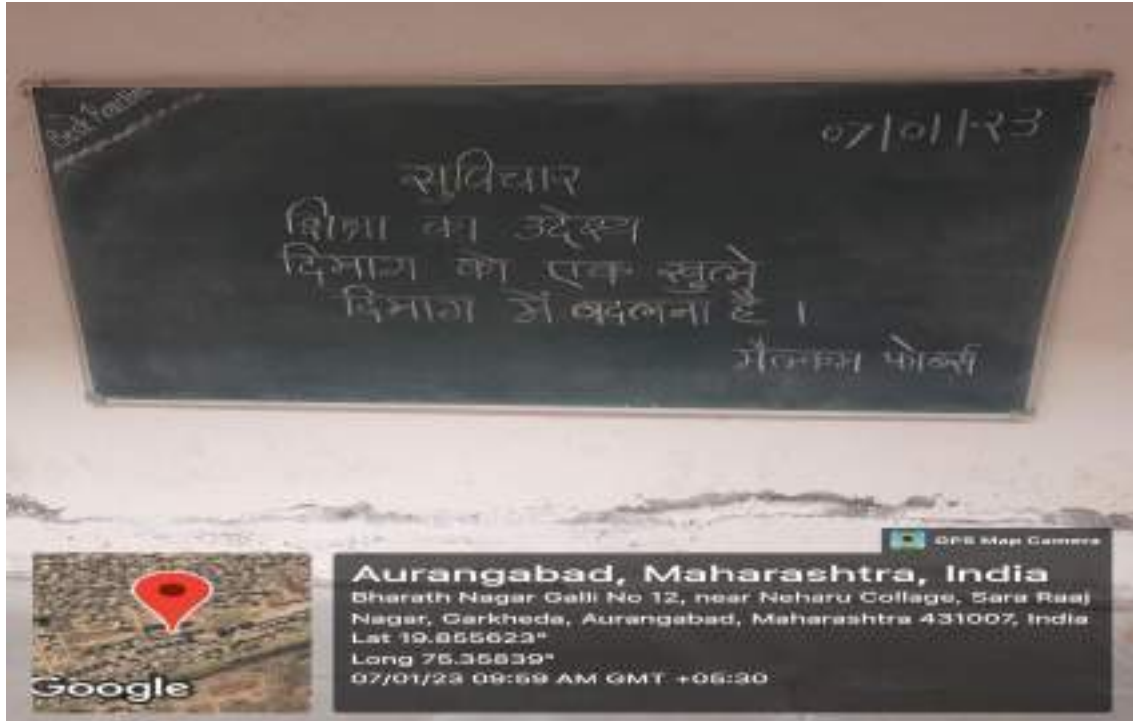 07/01/23
सुविचार
शिक्षा का उद्देश्य
दिमाग को एक खुले
दिमाग में बदलना है ।
मैल्कम फोर्ब्स
GPS Map Camera
Aurangabad, Maharashtra, India
Bharath Nagar Galli No 12, near Neharu Collage, Sara Raaj
Nagar, Garkheda, Aurangabad, Maharashtra 431007, India
Lat 19.855623°
Long 75.35839°
07/01/23 09:59 AM GMT +05:30
Google